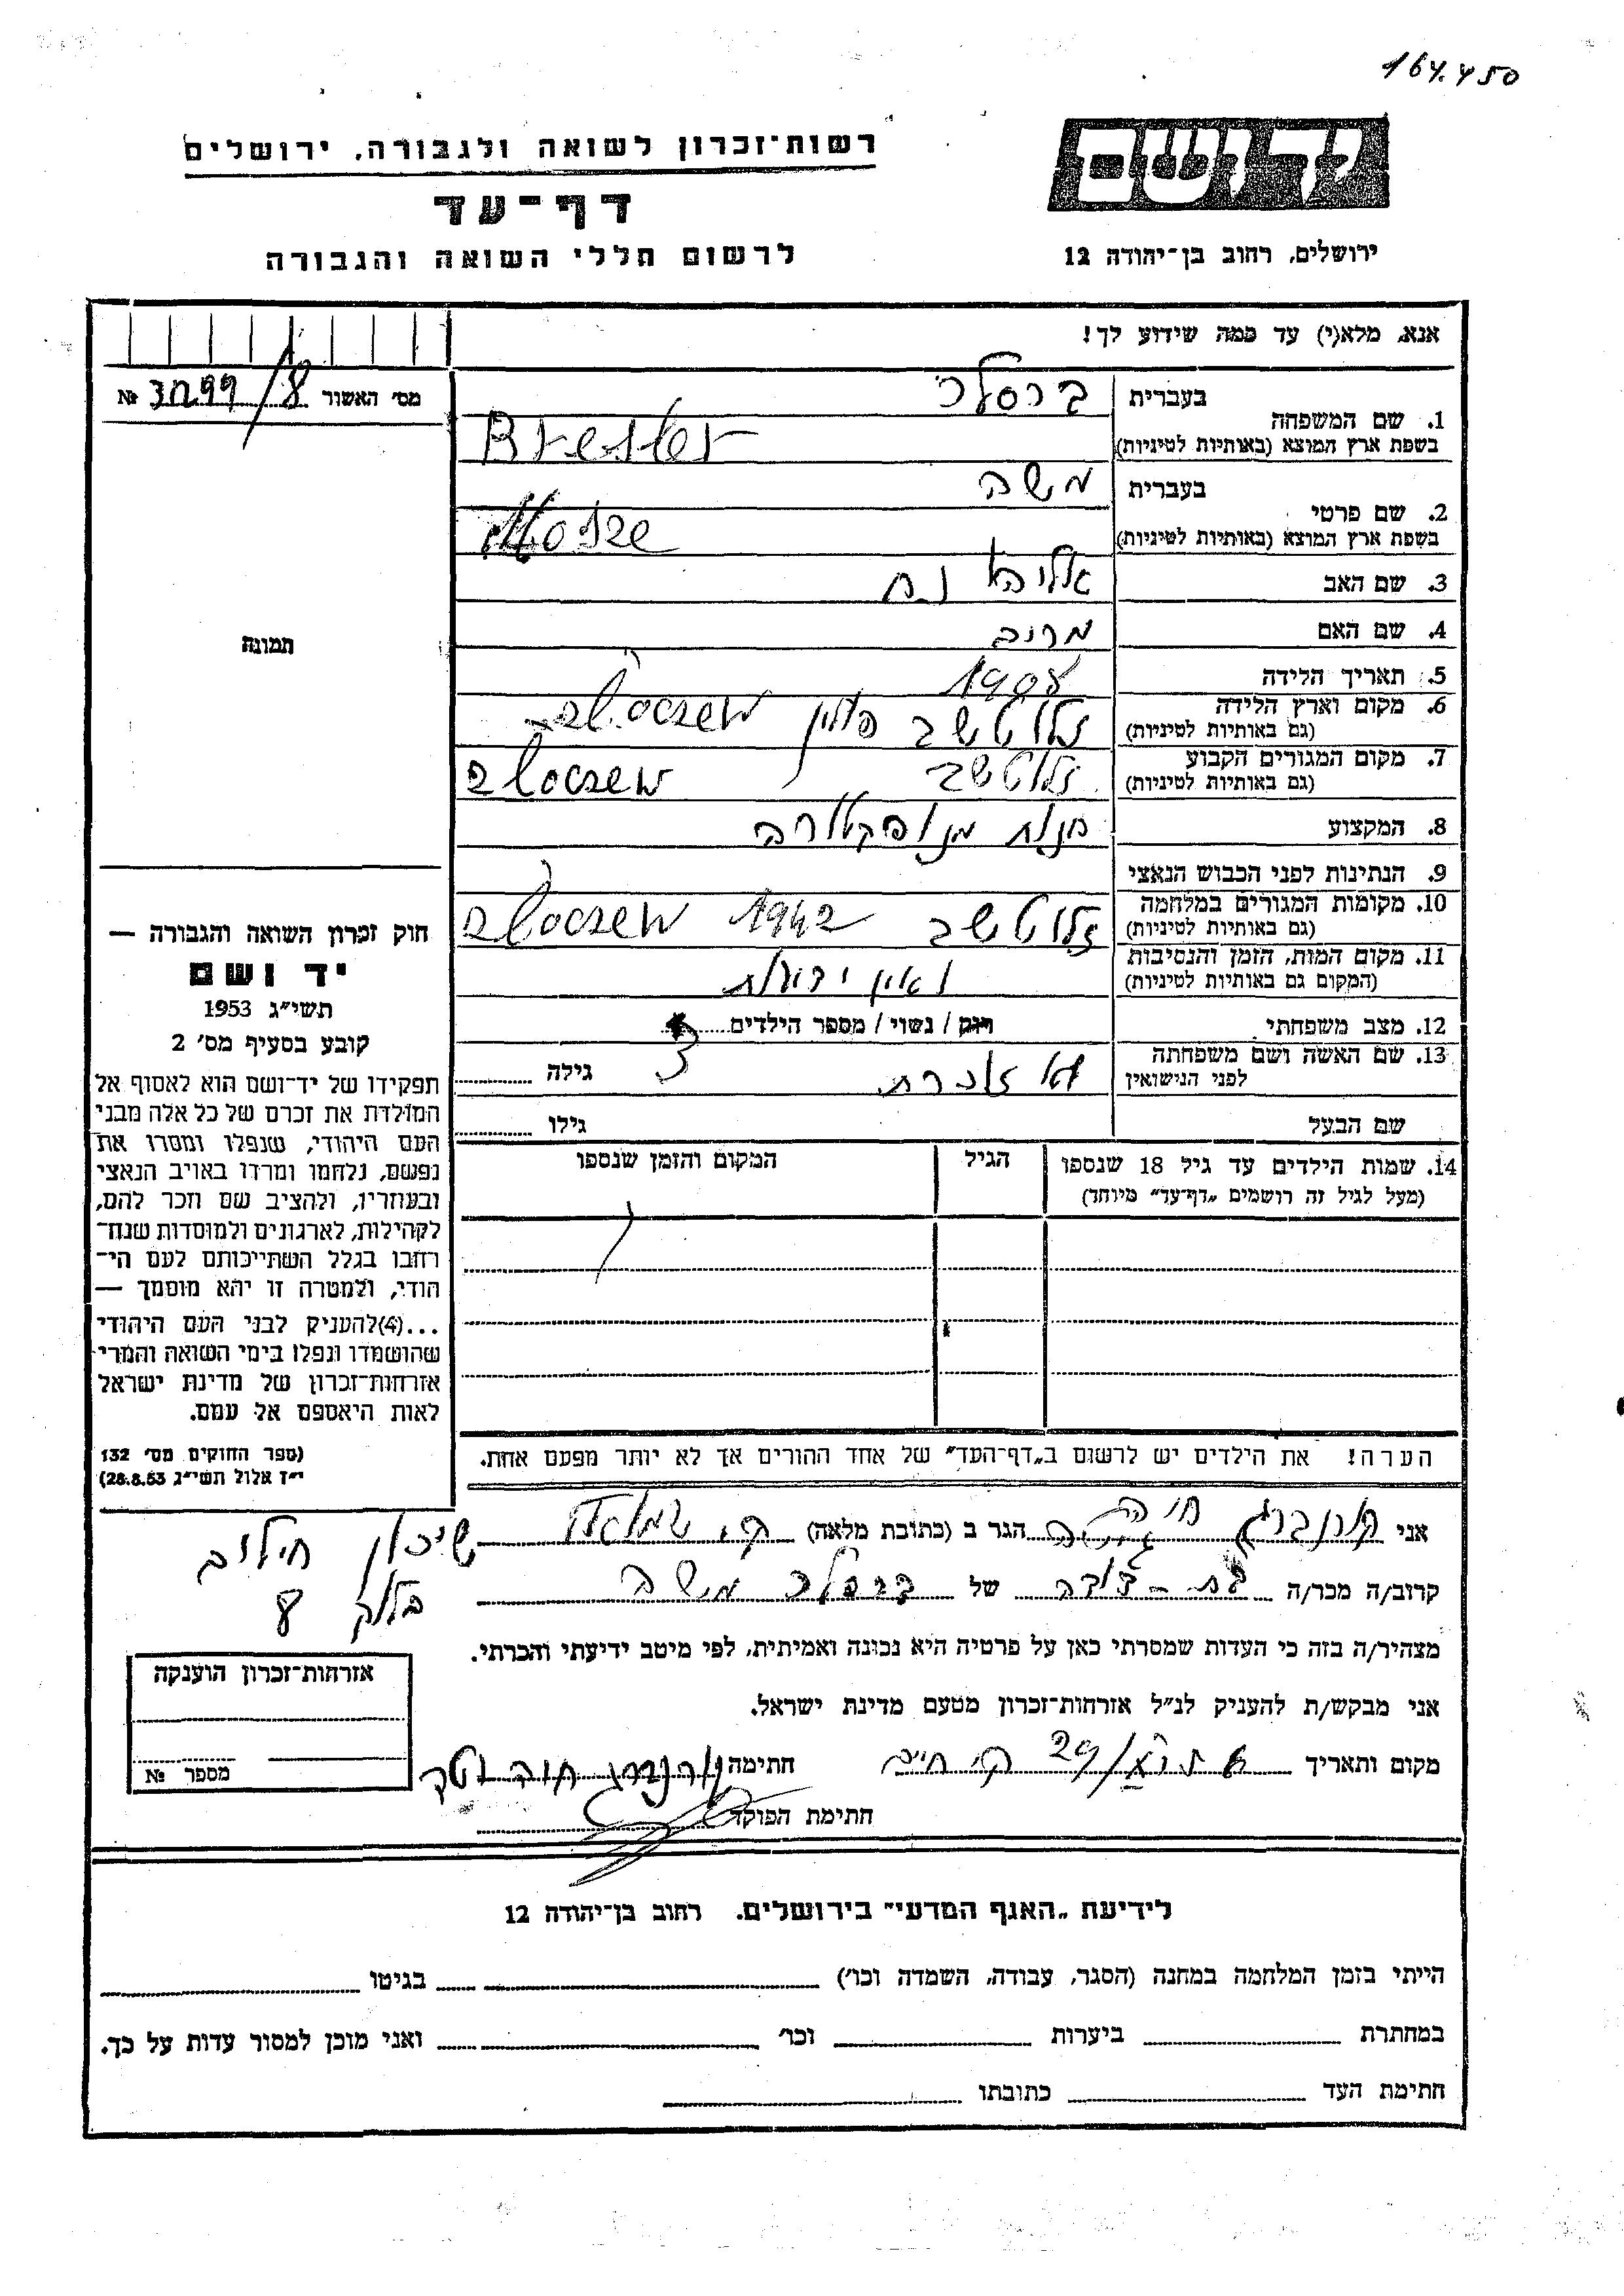 164.450
יד ושם
רשות־זכרון לשואה ולגבורה, ירושלים
דף־עד
לרשום חללי השואה והגבורה
ירושלים, רחוב בן־יהודה 12
אנא, מלא(י) עד כמה שידוע לך!
מס' האשור № /8
1. שם המשפחה
בעברית ברסלר
בשפת ארץ המוצא (באותיות לטיניות) Bresler
2. שם פרטי
בעברית משה
בשפת ארץ המוצא (באותיות לטיניות) Mosze
3. שם האב אליהו
4. שם האם
5. תאריך הלידה 1908
6. מקום וארץ הלידה
(גם באותיות לטיניות) זלוטשב פולין Zloczew
7. מקום המגורים הקבוע
(גם באותיות לטיניות) זלוטשב Zloczew
8. המקצוע חנות מנופקטורה
9. הנתינות לפני הכבוש הנאצי
10. מקומות המגורים במלחמה
(גם באותיות לטיניות) זלוטשב 1942 Zloczew
11. מקום המות, הזמן והנסיבות
(המקום גם באותיות לטיניות)
12. מצב משפחתי רווק / נשוי / מספר הילדים 3
13. שם האשה ושם משפחתה
לפני הנישואין לא זוכרת. גילה
שם הבעל גילו
14. שמות הילדים עד גיל 18 שנספו
(מעל לגיל זה רושמים "דף־עד" מיוחד)
הגיל
המקום והזמן שנספו
הערה! את הילדים יש לרשום ב"דף־העד" של אחד ההורים אך לא יותר מפעם אחת.
תמונה
חוק זכרון השואה והגבורה —
יד ושם
תשי"ג 1953
קובע בסעיף מס' 2
תפקידו של יד־ושם הוא לאסוף אל
המולדת את זכרם של כל אלה מבני
העם היהודי, שנפלו ומסרו את
נפשם, נלחמו ומרדו באויב הנאצי
ובעוזריו, ולהציב שם וזכר להם,
לקהילות, לארגונים ולמוסדות שנח־
רחבו בגלל השתייכותם לעם הי־
הודי, ולמטרה זו יהא מוסמך —
...(4)להעניק לבני העם היהודי
שהושמדו ונפלו בימי השואה והמרי
אזרחות־זכרון של מדינת ישראל
לאות היאספם אל עמם.
(ספר החוקים מס' 132
י"ז אלול תשי"ג 28.8.53)
אני חיה הגר ב (כתובת מלאה) ק. שמואל
שיכון
בלוק 8
קרוב/ה מכר/ה בת-דודה של ברסלר משה
מצהיר/ה בזה כי העדות שמסרתי כאן על פרטיה היא נכונה ואמיתית, לפי מיטב ידיעתי והכרתי.
אני מבקש/ת להעניק לנ"ל אזרחות־זכרון מטעם מדינת ישראל.
מקום ותאריך ק. חתימה
חתימת הפוקד
אזרחות־זכרון הוענקה
מספר №
לידיעת "האגף המדעי" בירושלים, רחוב בן־יהודה 12
הייתי בזמן המלחמה במחנה (הסגר, עבודה, השמדה וכו') בגיטו
במחתרת ביערות וכו' ואני מוכן למסור עדות על כך.
חתימת העד כתובתו